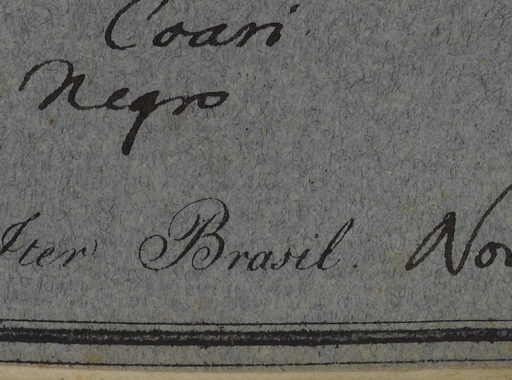 Coari
Negro
Iter Brasil. Nov